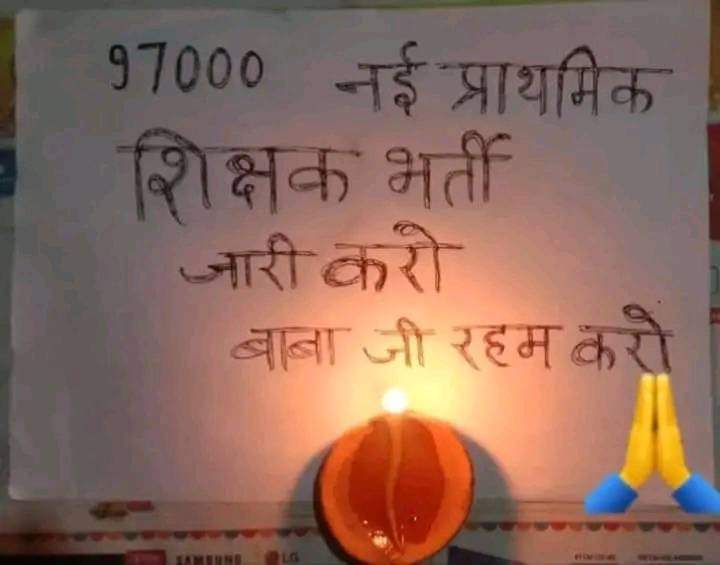 97000 नई प्राथमिक
शिक्षक भर्ती
जारी करो
बाबा जी रहम करो
SAMSUNG LG